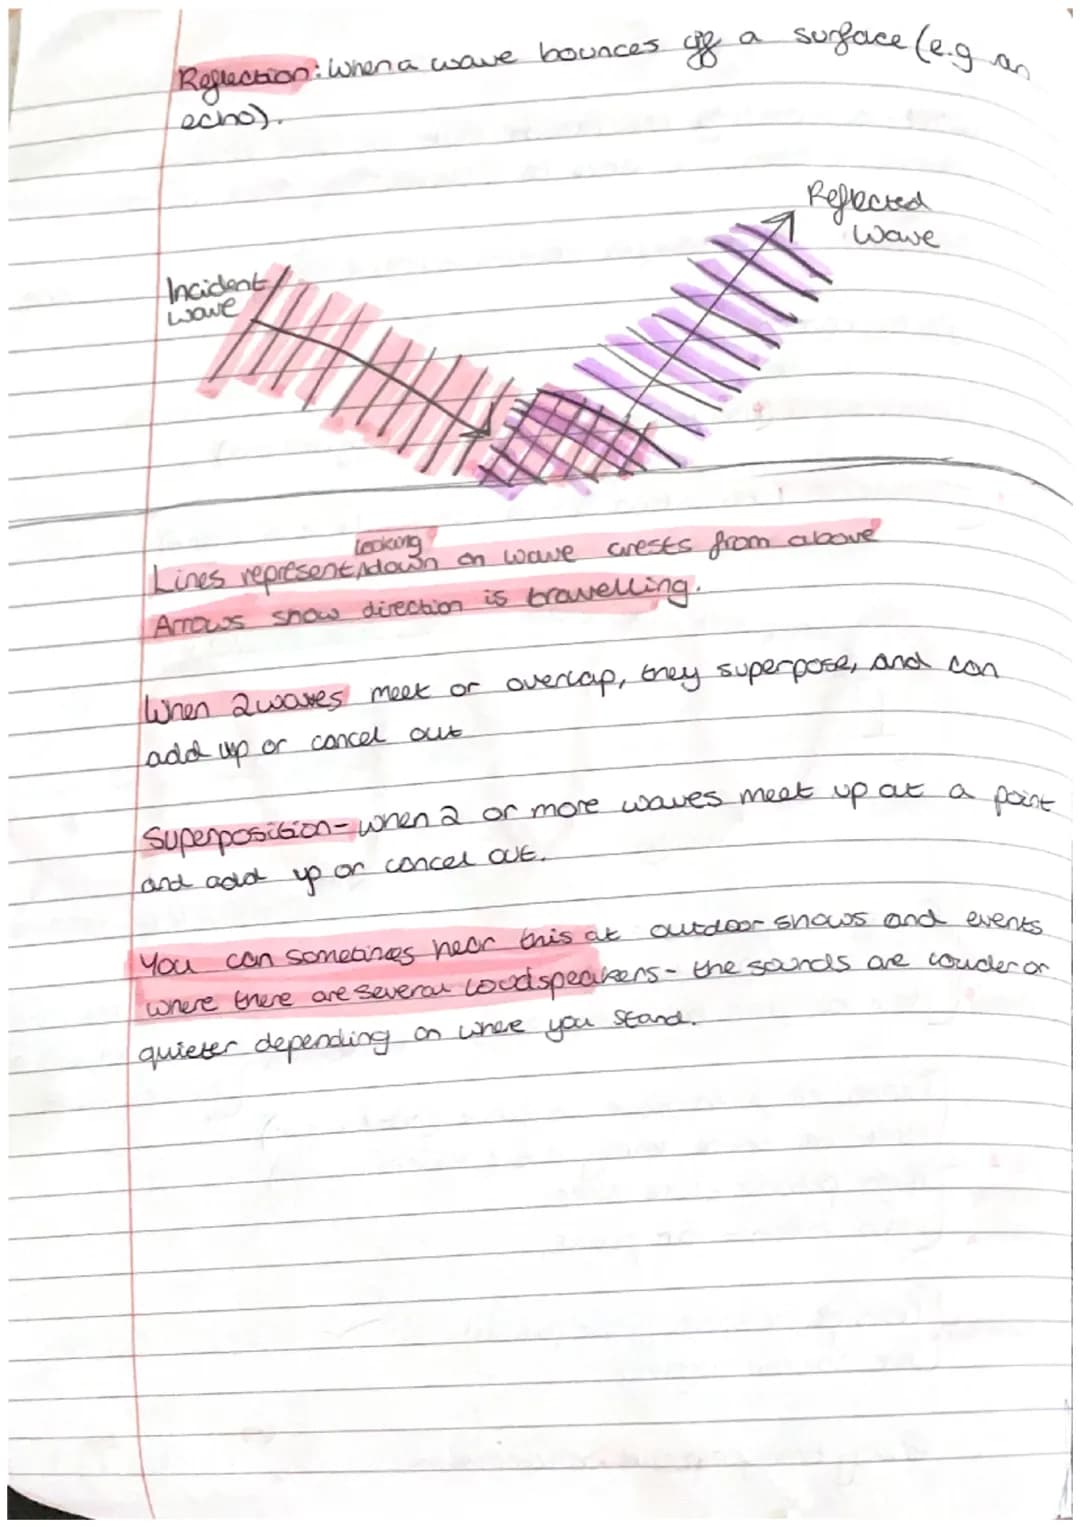 Reflection: When a wave bounces off a surface (e.g an
echo).
Reflected
Wave
Incident
wave
looking
Lines represent down on wave crests from above
Arrows show direction is travelling.
When 2 waves meet or overlap, they superpose, and can
add up or cancel out
Superposition - when 2 or more waves meet up at a point
and add up or cancel out.
You can sometimes hear this at outdoor shows and events
where there are several loudspeakers - the sounds are louder or
quieter depending on where you stand.